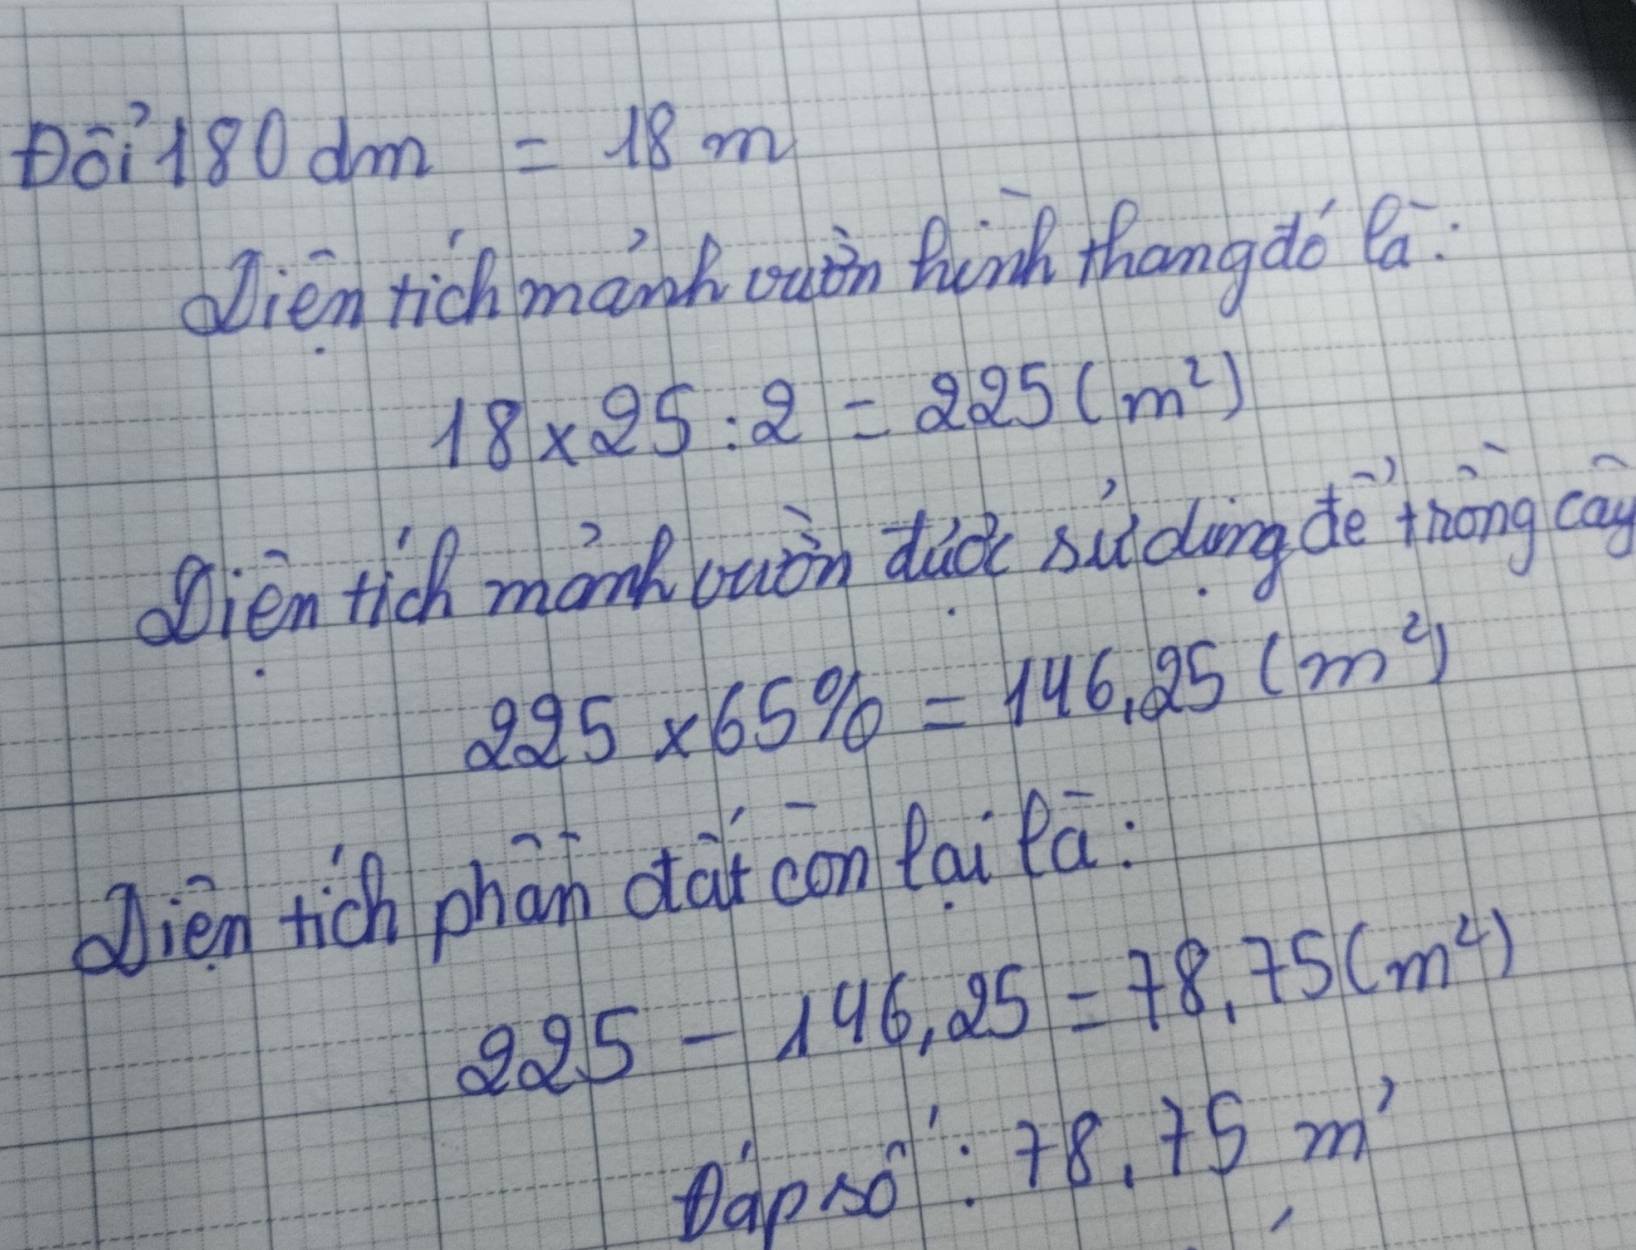 Đổi 180 dm = 18 m
Diện tích mảnh vườn hình thang đó là:
18 x 25 : 2 = 225 (m²)
Diện tích mảnh vườn được sử dụng để trồng cây
225 x 65% = 146,25 (m²)
Diện tích phần đất còn lại là:
225 - 146,25 = 78,75 (m²)
Đáp số: 78,75 m²